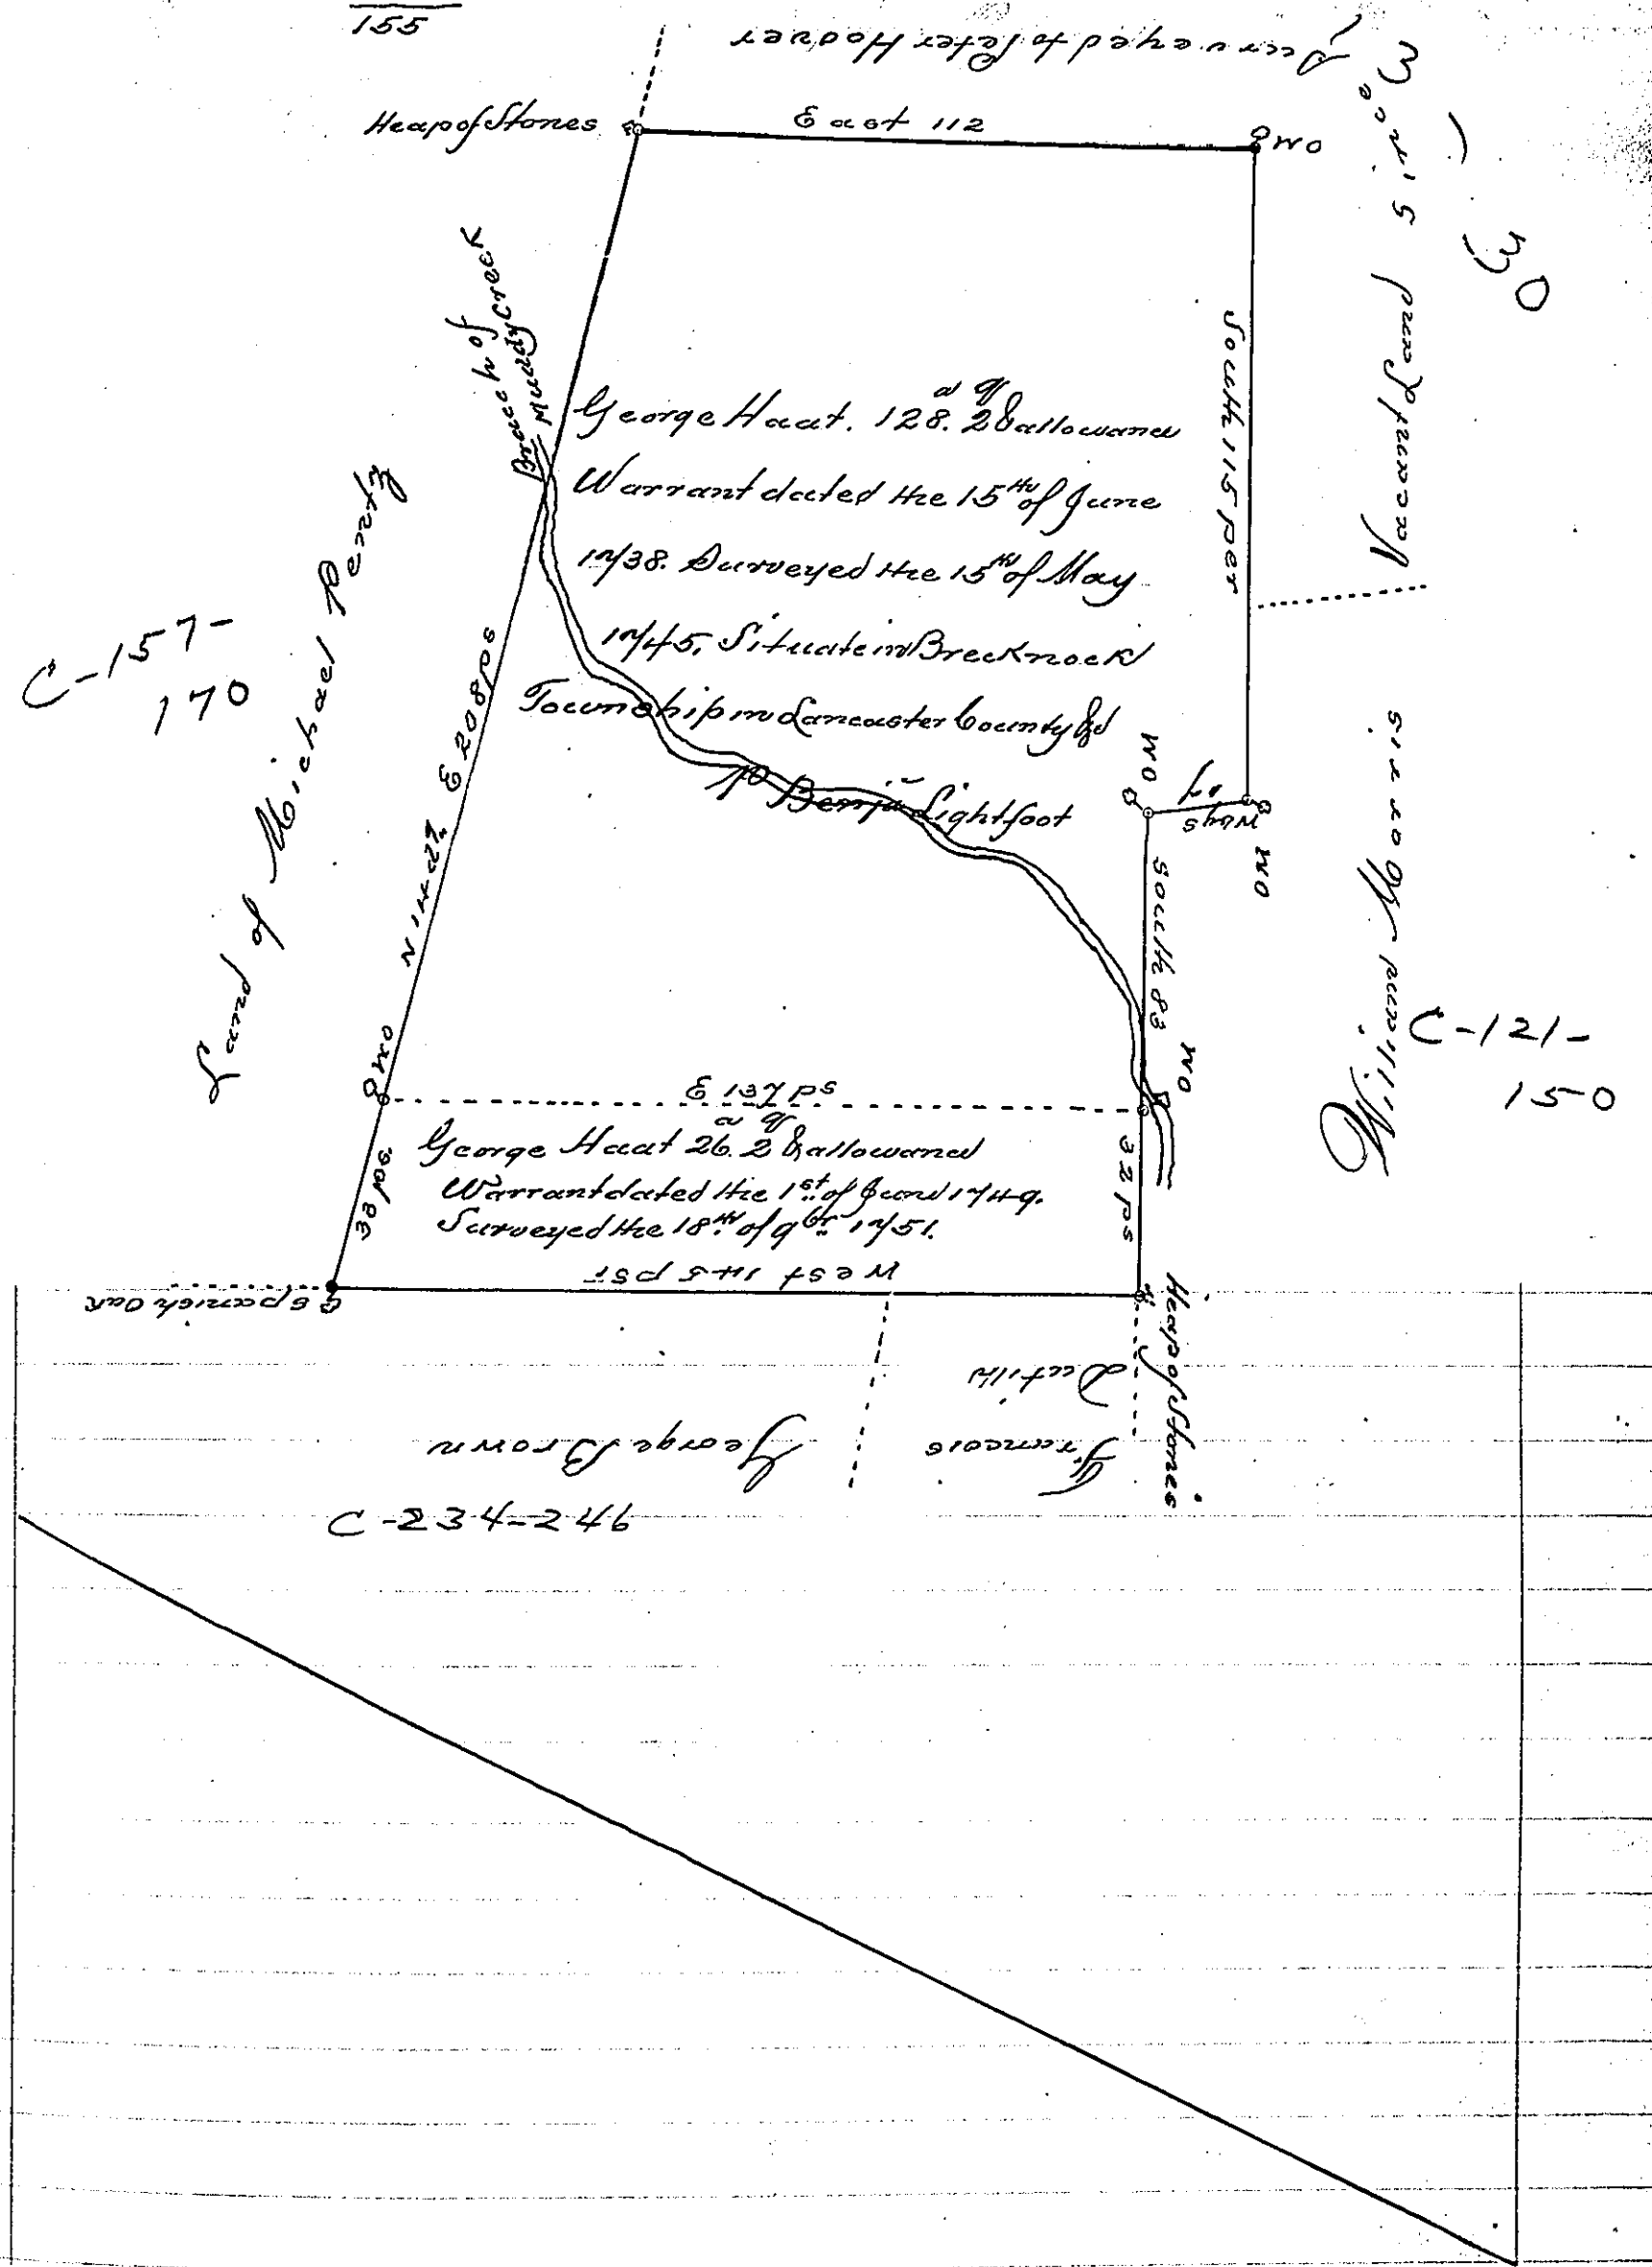 155
Surveyed to Peter Hoover
Heap of Stones
East 112
WO
30
Vacant Land
South 115 per
Branch of
Muddy Creek
George Haat. 128. 2 & allowance
a qr
Warrant dated the 15th of June
1738. Surveyed the 15th of May
1745, Situate in Brecknock
Township in Lancaster County &c
P Benja Lightfoot
Land of Michael Pertz
C-157-
170
E 208 ps
WO
W 9 S
17
WO
South 83
WO
William Morris
C-121-
150
WO
E 137 ps
George Haat 26. 2 & allowance
a qr
Warrant dated the 1st of June 1749.
Surveyed the 18th of 9br 1751.
38 ps
32 ps
West 145 ps
Spanish Oak
Heap of Stones
George Brown
Francis
C-234-246